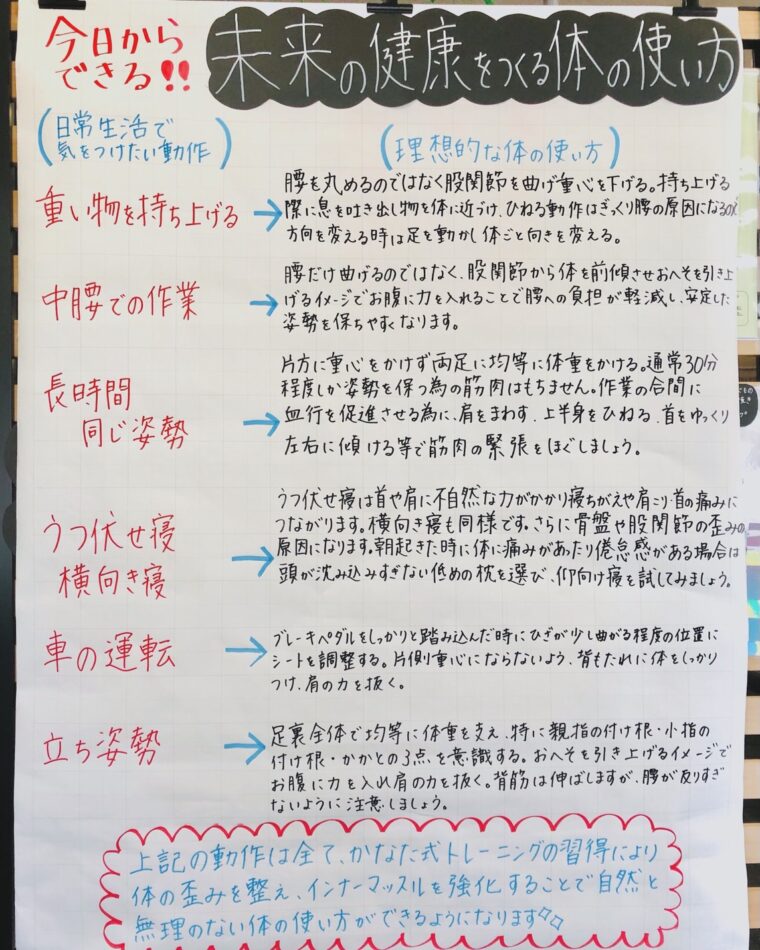 今日から
できる!!
未来の健康をつくる体の使い方
(日常生活で
気をつけたい動作)
(理想的な体の使い方)
重い物を持ち上げる→
腰を丸めるのではなく股関節を曲げ重心を下げる。持ち上げる
際に息を吐き出し物を体に近づけ、ひねる動作はぎっくり腰の原因になるので
方向を変える時は足を動かし体ごと向きを変える。
中腰での作業→
腰だけ曲げるのではなく、股関節から体を前傾させおへそを引き上
げるイメージでお腹に力を入れることで腰への負担が軽減し、安定した
姿勢を保ちやすくなります。
長時間
同じ姿勢→
片方に重心をかけず両足に均等に体重をかける。通常30分
程度しか姿勢を保つ為の筋肉はもちません。作業の合間に
血行を促進させる為に、肩をまわす、上半身をひねる、首をゆっくり
左右に傾ける等で筋肉の緊張をほぐしましょう。
うつ伏せ寝
横向き寝→
うつ伏せ寝は首や肩に不自然な力がかかり寝ちがえや肩こり・首の痛みに
つながります。横向き寝も同様です。さらに骨盤や股関節の歪みの
原因になります。朝起きた時に体に痛みがあったり倦怠感がある場合は
頭が沈み込みすぎない低めの枕を選び、仰向け寝を試してみましょう。
車の運転→
ブレーキペダルをしっかりと踏み込んだ時にひざが少し曲がる程度の位置に
シートを調整する。片側重心にならないよう、背もたれに体をしっかり
つけ、肩の力を抜く。
立ち姿勢→
足裏全体で均等に体重を支え、特に親指の付け根・小指の
付け根・かかとの3点を意識する。おへそを引き上げるイメージで
お腹に力を入れ肩の力を抜く。背筋は伸ばしますが、腰が反りすぎ
ないように注意しましょう。
上記の動作は全て、かなた式トレーニングの習得により
体の歪みを整え、インナーマッスルを強化することで自然と
無理のない体の使い方ができるようになります